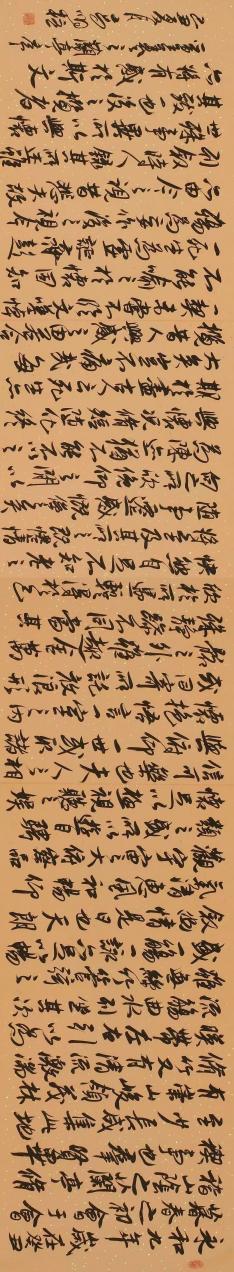 永和九年歲在癸丑
暮春之初會于會
稽山陰之蘭亭脩
禊事也羣賢畢
至少長咸集此地
有崇山峻領茂林
脩竹又有清流激湍
映帶左右引以為
流觴曲水列坐其次
雖無絲竹管弦之
盛一觴一詠亦足以暢
敘幽情是日也天朗
氣清惠風和暢仰
觀宇宙之大俯察品
類之盛所以遊目騁
懷足以極視聽之娛
信可樂也夫人之相
與俯仰一世或取諸
懷抱悟言一室之內
或因寄所託放浪形
骸之外雖趣舍萬
殊靜躁不同當其
欣於所遇暫得於己
快然自足不知老之
將至及其所之既惓情
隨事遷感慨係之矣
向之所欣俛仰之間以
為陳迹猶不能不以之
興懷況脩短隨化終
期於盡古人云死生亦
大矣豈不痛哉每
攬昔人興感之由若合
一契未嘗不臨文嗟悼
不能喻之於懷固知
一死生為虛誕齊彭
殤為妄作後之視今
亦由今之視昔悲夫故
列敘時人錄其所述雖
世殊事異所以興懷
其致一也後之攬者
亦將有感於斯文